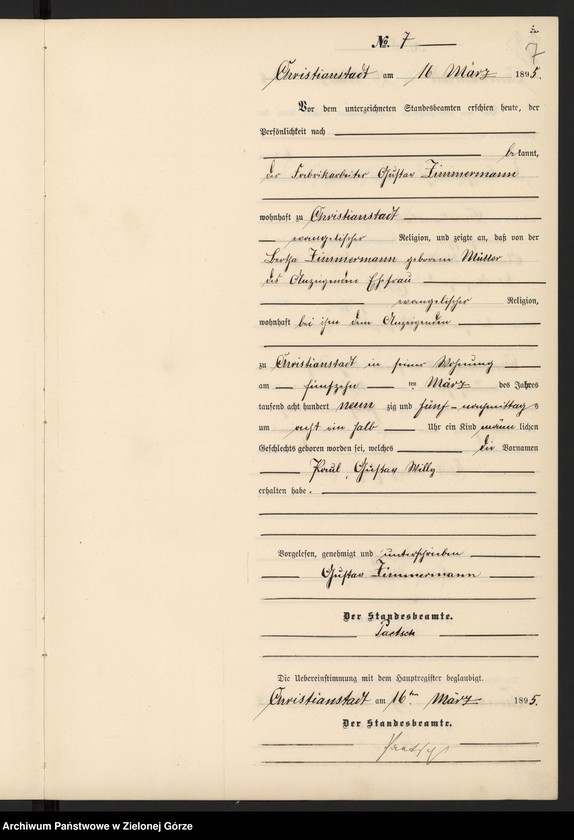 7
No. 7
Christianstadt am 16 März 1895.
Vor dem unterzeichneten Standesbeamten erschien heute, der
Persönlichkeit nach
bekannt,
der Fabrikarbeiter Gustav Zimmermann
wohnhaft zu Christianstadt
evangelischer Religion, und zeigte an, daß von der
Bertha Zimmermann geborene Müller
des Anzeigenden Ehefrau
evangelischer Religion,
wohnhaft bei ihm dem Anzeigenden
zu Christianstadt in seiner Wohnung
am fünfzehn ten März des Jahres
tausend acht hundert neun zig und fünf nachmittags
um acht ein halb Uhr ein Kind männlichen
Geschlechts geboren worden sei, welches die Vornamen
Paul, Gustav Willy
erhalten habe.
Vorgelesen, genehmigt und unterschrieben
Gustav Zimmermann
Der Standesbeamte.
Paetsch
Die Uebereinstimmung mit dem Hauptregister beglaubigt.
Christianstadt am 16ten März 1895.
Der Standesbeamte.
Paetsch
Archiwum Państwowe w Zielonej Górze